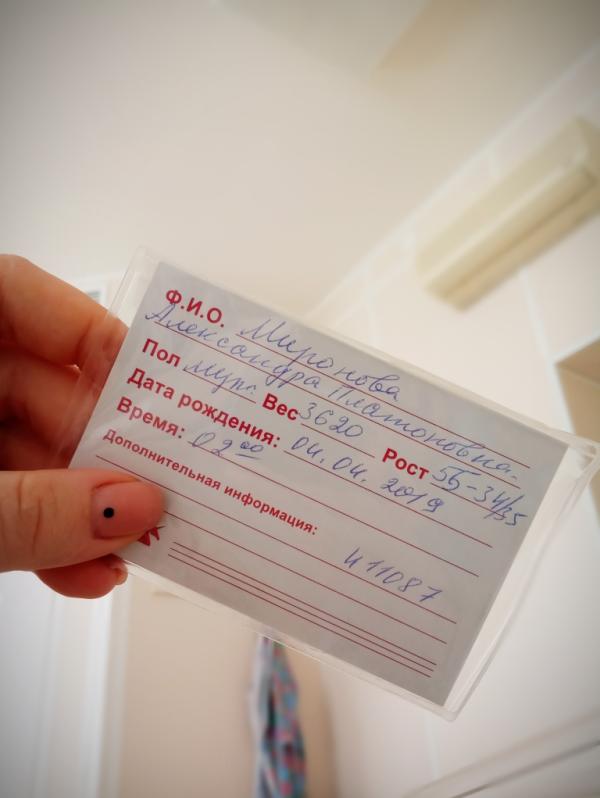 Ф.И.О. Миронова
Александра Платоновна.
Пол муж. Вес 3620 Рост 55-34/35
Дата рождения: 04.04.2019
Время: 02⁰⁰
Дополнительная информация:
И 11087